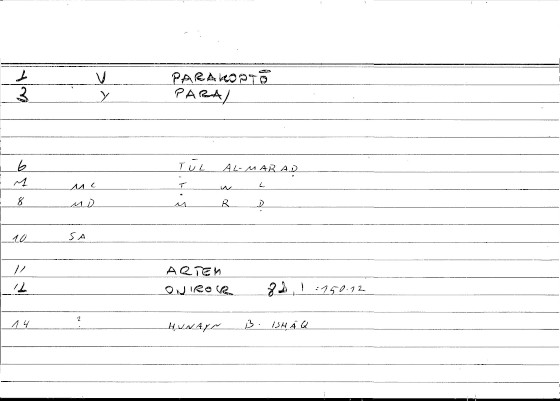 1 V PARAKOPTŌ
3 Y PARA/
6 ṬŪL AL-MARAḌ
M ML Ṭ W L
8 MD M R Ḍ
10 SA
11 ARTEM
12 ONIROCR 82,1:150.12
14 ? ḤUNAYN B. ISḤĀQ